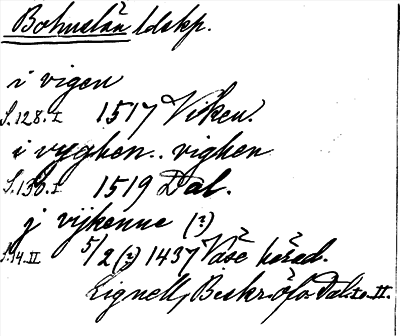 Bohuslän ldskp.
i vigen
S. 128. I 1517 Viken.
i vyghen.. vighen
S. 130. I 1519 Dal.
j vijkenne (?)
S. 14. II 5/2 (?) 1437 Väse härad.
Lignell, Beskr. öfv. Dal I o. II.